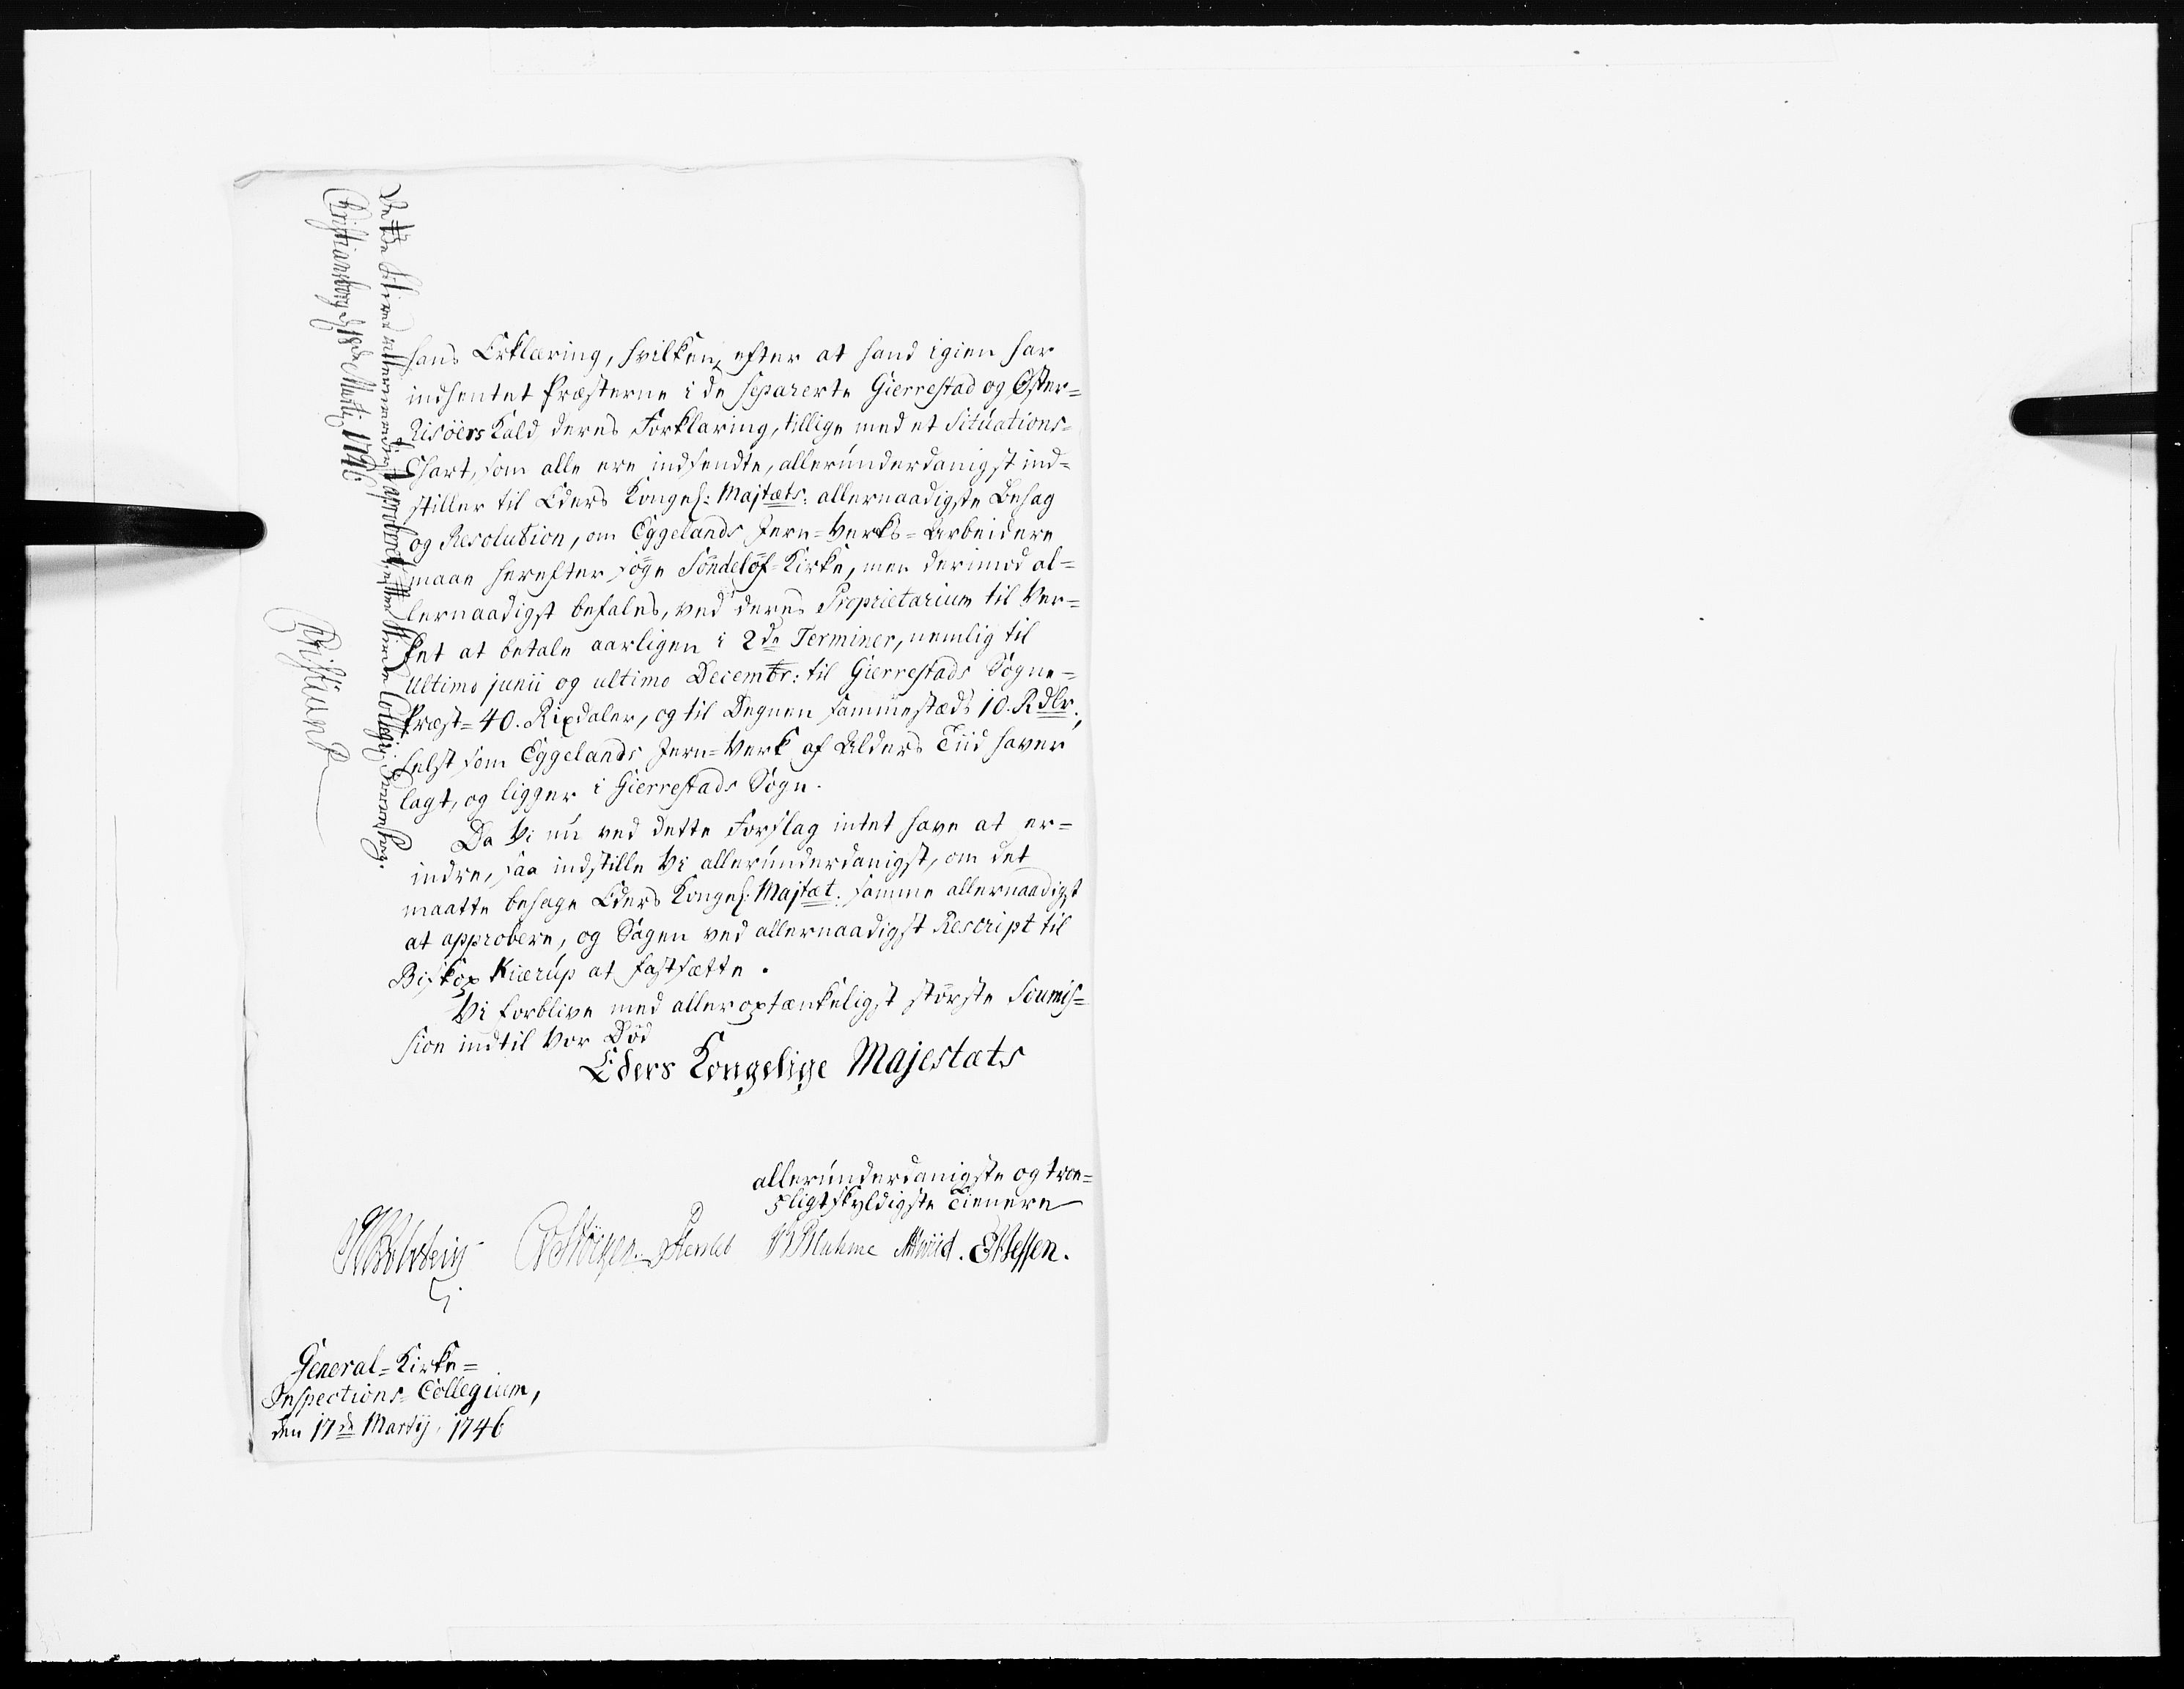 hans Erklæring, hvilken, efter at hand igien har
indhentet Præsterne i de separerte Gierrestad og Øster=
Risöers Kald deres Forklaring, tillige med et Situations=
Chart, som alle ere indsendte, allerúnderdanigst ind=
stiller til Eders Kongel: Majtæts: allernaadigste Behag
og Resolution, om Eggelands Jern=Verks=Arbeidere
maae herefter söge Söndelöf=Kirke, men derimod al=
lernaadigst befales, ved deres Proprietarium til Ver=
ket at betale aarligen i 2de Terminer, nemlig til
Ultimo junii og ultimo Decembr: til Gierrestads Sogne=
Præst= 40. Rixdaler, og til Degnen sammestæds 10. Rdlr.,
helst som Eggelands Jern=Verk af Alders Tiid haver
lagt, og ligger i Gierrestads Sogn.
Da Vi nú ved dette Forslag intet have at er=
indre, saa indstille Vi allerúnderdanigst, om det
maatte behage Eders Kongel: Majtæt: samme allernaadigst
at approbere, og Sagen ved allernaadigst Rescript til
Biskop Kiærúp at fastsætte.
Vi forblive med alleroptænkeligst störste Soumis=
sion indtil vor Död
Eders Kongelige Majestæts
allerúnderdanigste og troe=
pligtskyldigste Tienere
Holstein JBluhme MWöldike EHessen.
General=Kirke=
Inspections=Collegium,
den 17de Martij, 1746
Dette bliver allernaadigst approberet, efter Collegij Forslag.
Christiansborg d 18de Martij 1746
Christian R